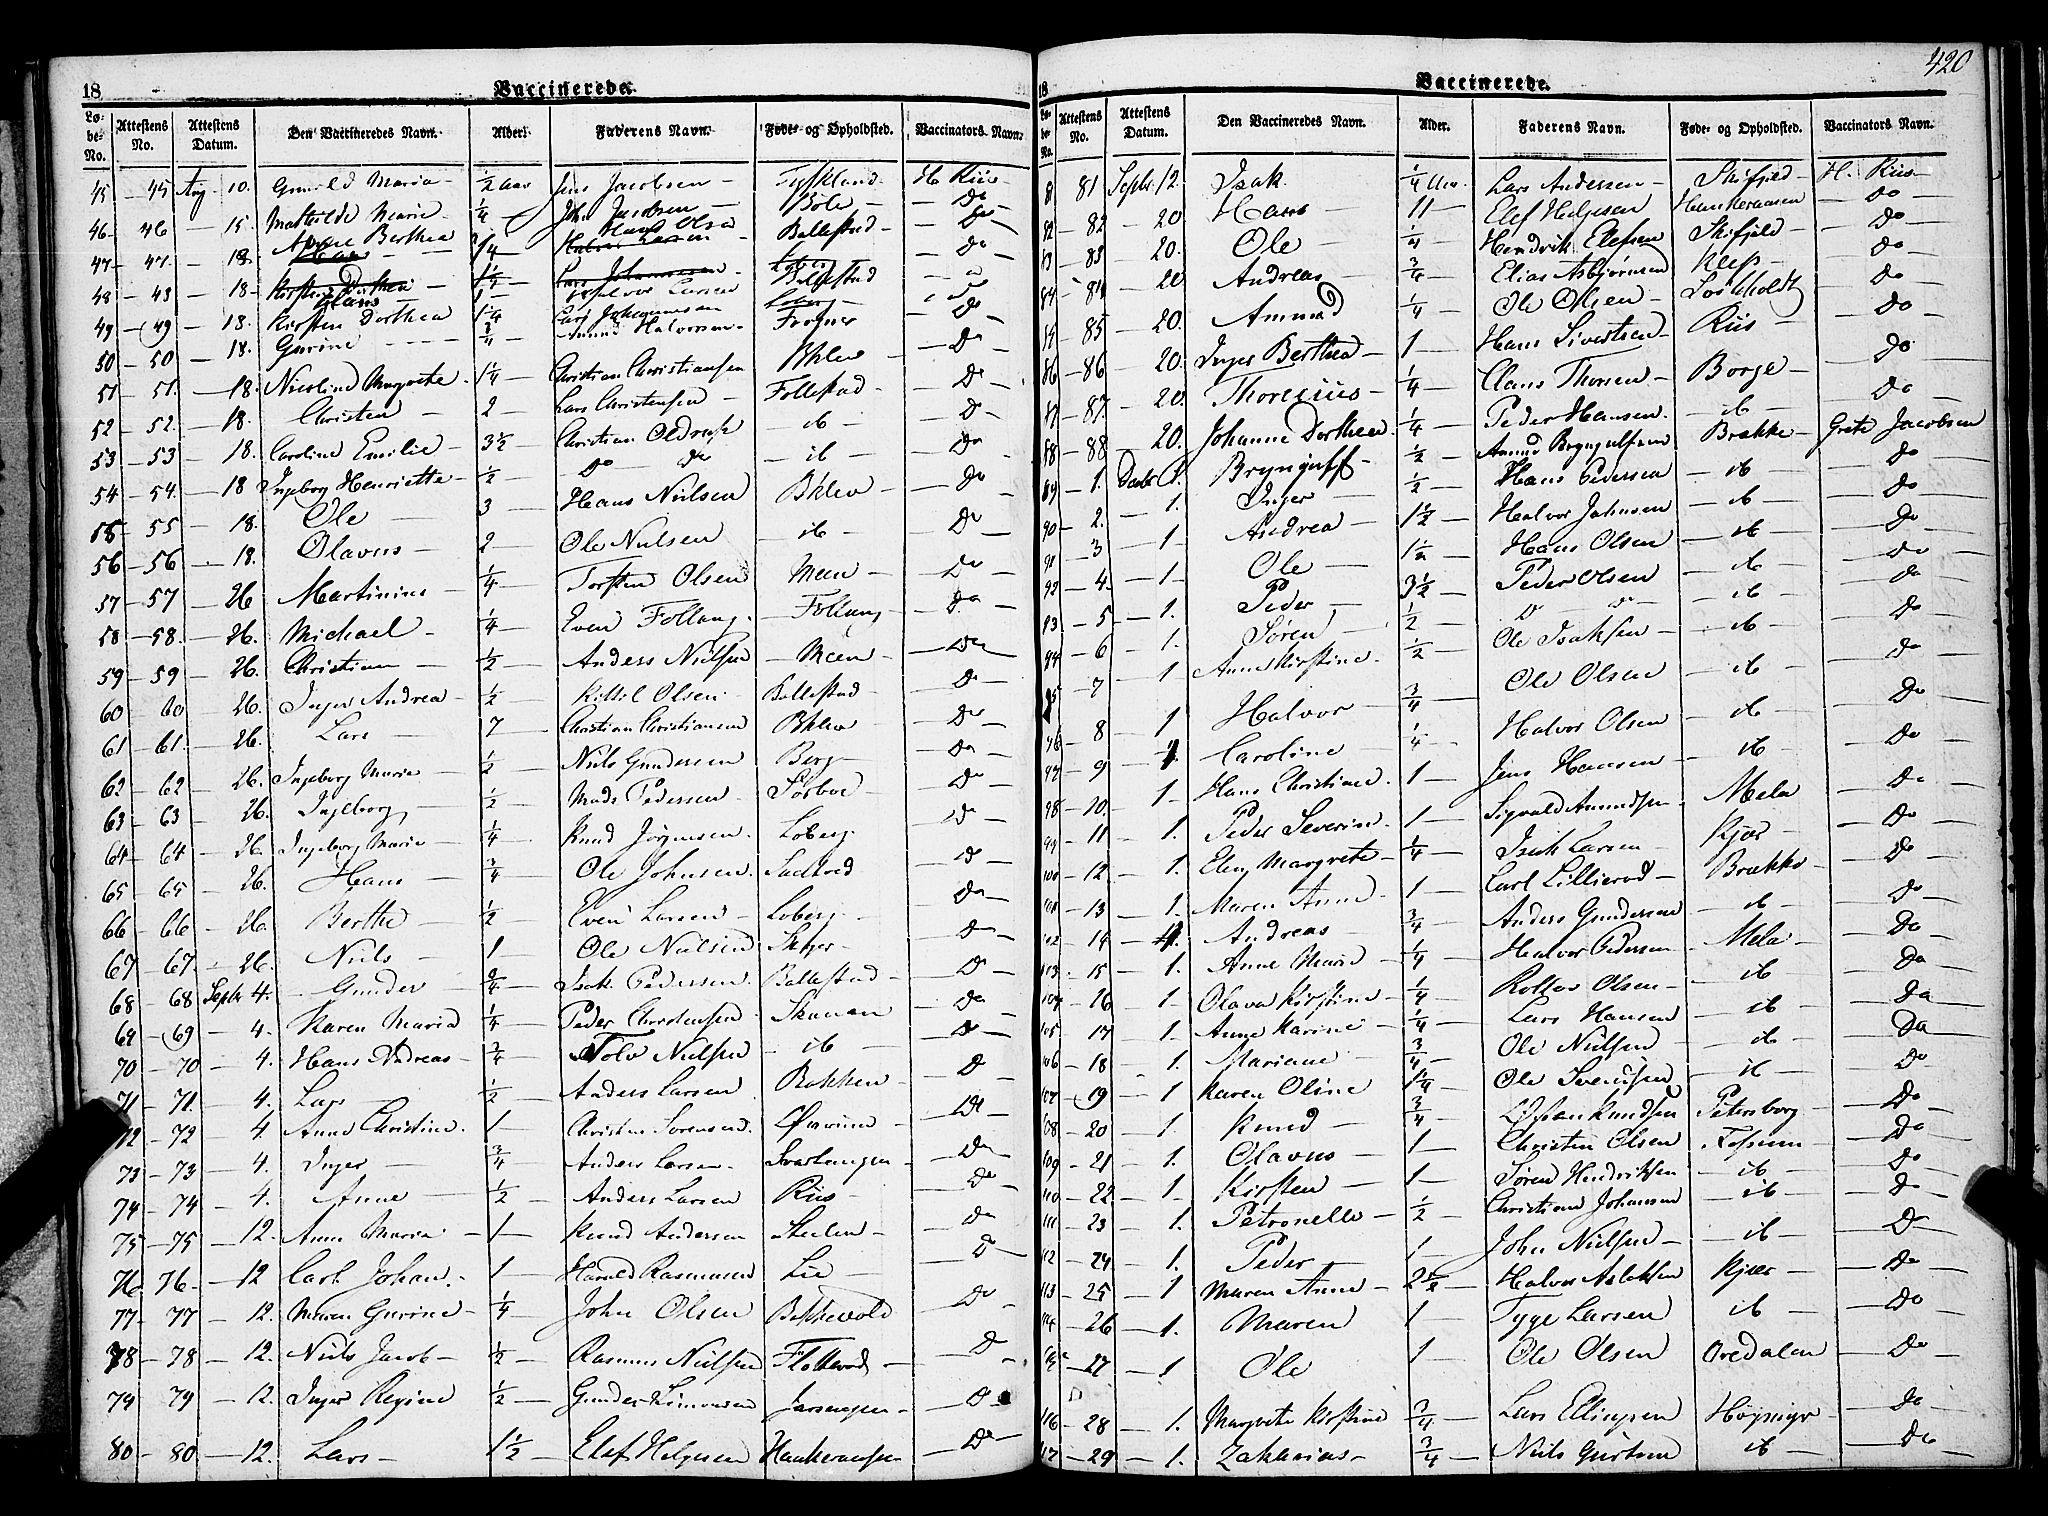 18 Vaccinerede.
Lø-be-No. Attestens No. Attestens Datum. Den Vaccineredes Navn. Alder. Faderens Navn. Føde- og Opholdsted. Vaccinators Navn.
45 — 45 Aug 10. Gunild Maria — 1/2 Aar Jens Jacobsen — Tyskland — H. Riis —
46 — 46 — 15. Mathilde Marie — 1/4 — John Jacobsen — Bole — Do
47 — 47. — 18. Anne Berthea 1/4 Hans Olsen Ballestad — Do
48 — 48 — 18 — Hans 1 — Halvor Larsen Ballestad
49 — 49 — 18. Kirsten Dorthea 1 1/4 Lars Johannesen Loberg — Do
50 — 50 — 18. Gurine 3/4 Amund Halvorsen — Fogner Do
51 — 51. — 18. Nicoline Margrete 1 1/4 Christian Christiansen Bklev — Do
52 — 52. — 18. Christen — 2 — Lars Christensen — Follestad — Do
53 — 53 — 18. Caroline Emilie — 3 1/2 Christian Oldrup — ib — Do
54 — 54. — 18 Ingeborg Henriette 1/2 — Do Do — ib — Do
55 — 55 — 18. Ole — 3 Hans Nielsen Bklev — Do
56 — 56 — 18. Olavus — 2 — Ole Nielsen — ib — Do
57 — 57 — 26 Martinius — 1/4 Torsten Olsen Meen — Do
58 — 58. — 26. Michael — 1/4 — Even Follaug — Follaug — Do
59 — 59 — 26. Christian — 1/2 — Anders Nielsen — Meen — Do
60 — 60 — 26. Inger Andrea — 1/2 — Kittil Olsen — Ballestad — Do
61 — 61. — 26. Lars — 7 — Christian Christiansen Bklev — Do
62 — 62 — 26. Ingeborg Maria — 1/2 — Niels Gundersen — Berg — Do
63 — 63 — 26. Ingeborg 1/2 — Mads Pedersen — Sorboe — Do
64 — 64 — 26. Ingeborg Maria — 1/4 — Knud Jörgensen — Loberg — Do
65 — 65 — 26. Hans — 3/4 — Ole Johnsen — Do
66 — 66 — 26. Berthe 1/2 — Even Larsen — Loberg — Do
67 — 67 — 26. Niels — 1 — Ole Nielsen Do
68 — 68 Septr 4. Gunder 3/4 — Isak Pedersen — Ballestad — Do
69 — 69 — 4. Karen Maria 1/4 — Peder Christensen — Skanan — Do
70 — 70 — 4. Hans Andreas — 3/4 — Tolv Nielsen — ib — Do
71 — 71. — 4. Lars — 1/2 — Anders Larsen Bakken — Do
72 — 72 — 4. Anne Christine. 1 — Christen Sorensen Do
73 — 73 — 4. Inger — 3/4 Anders Larsen — Svartangen — Do
74 — 74 — 4. Anne 1/2 — Anders Larsen Riis — Do
75 — 75 — 12. Anne Maria — 1 — Knud Andersen Do
76 — 76. — 12 Carl Johan. 1 — Harald Rasmusen Lie — Do
77 — 77 — 12. Maren Gurine — 1/4 John Olsen Bekkevold Do
78 — 78 — 12. Niels Jacob — 1/2 — Rasmus Nielsen Do
79 — 79 — 12. Inger Regine 1/2 Gunder Simonsen Do
80 — 80 — 12. Lars — 1 1/2 Elef Helgesen Haukeraasen Do
420
18 Vaccinerede.
Lø-be-No. Attestens No. Attestens Datum. Den Vaccineredes Navn. Alder. Faderens Navn. Føde- og Opholdsted. Vaccinators Navn.
81 — 81 Septr 12. Isak 1/4 Aar. Lars Andersen — Skifjeld — H. Riis —
82 — 82 — 20. Hans — 11 — Elef Helgesen Haukeraasen Do
83 — 83 — 20. Ole — 1/4 — Hendrik Elefsen Skifjeld — Do
84 — 84 — 20 Andreas — 3/4 — Elias Asbjørnsen Kleps — Do
85 — 85 — 20. Ammund 1/4 — Ole Olsen — Do
86 — 86 — 20. Inger Berthea — 1 — Hans Sivertsen — Riis — Do
87 — 87. — 20. Thorenius — 1/4 — Claus Thorsen — Borge — Do
88 — 88 — 20. Johanne Dorthea 1/4 — Peder Hansen. — ib — Do
89 — 1. Decbr 1. Bryngulf — 1/2 — Amund Bryngulfsen Brække — Grete Jacobsen
90 — 2. — 1. Inger — 1/2 — Hans Pedersen — ib — Do
91 — 3 — 1 Andrea — 1 1/2 — Halvor Johnsen — ib — Do
92 — 4. — 1 Ole — 1 1/2 — Hans Olsen — ib — Do
93 — 5 — 1. Peder — 3 1/2 — Peder Olsen — ib — Do
94 — 6 — 1. Sören 1/2 — Do Do — ib — Do
95 — 7 — 1 Anne Kirstine. 1/2 — Ole Isaksen — ib — Do
96 — 8 — 1 Halvor — 3/4 Ole Olsen — ib — Do
97 — 9 — 1. Caroline 1/4 — Halvor Olsen — ib — Do
98 — 10. — 1 Hans Christian 1 — Jens Hansen — ib — Do
99 — 11 — 1. Peder Severin — 1 — Sigvald Amundsen Mela Do
100 — 12 — 1. Elen Margrete — 1/4 — Isak Larsen — Kjær — Do
101 — 13 — 1. Maren Anne 1 — Carl Lillerod — Brække — Do
102 — 14 — 1. Andreas — 3/4 — Anders Gundersen — ib — Do
103 — 15 — 1. Anne Marie — 1/4 — Halvor Pedersen — Mela — Do
104 — 16 — 1. Olava Kirstine — 1/4 — Olsen — — ib Do
105 — 17 — 1. Anne Karine — 1/4 — Lars Hansen — ib — Do
106 — 18 — 1. Mariane — 3/4 — Ole Nielsen — ib — Do
107 — 19 — 1 Karen Oline 1 1/4 — Ole Svendsen — ib — Do
108 — 20 — 1. Knud — 3/4 — Knudsen Petersborg — Do
109 — 21 — 1. Olavus — 1 — Christen Olsen Fossum — Do
110 — 22 — 1. Kirsten — 1 — Sören Hendriksen — ib — Do
111 — 23 — 1. Petronelle — 1/2 — Christian Johansen — ib — Do
112 — 24 — 1. Peder — 1 — John Nielsen — — ib — Do
113 — 25 — 1 Maren Anne — 2 1/2 — Halvor Aslaksen Kjær — Do
114 — 26 — 1. Maren 1 — Tyge Larsen ib — Do
115 — 27 — 1 Ole 1 — Ole Olsen Oredalen Do
116 — 28 — 1. Margrete Kirstine 3/4 — Lars Ellingsen Høymyr Do
117 — 29 — 1. Zakharias — 3/4 — Niels Gurtsen — ib — Do